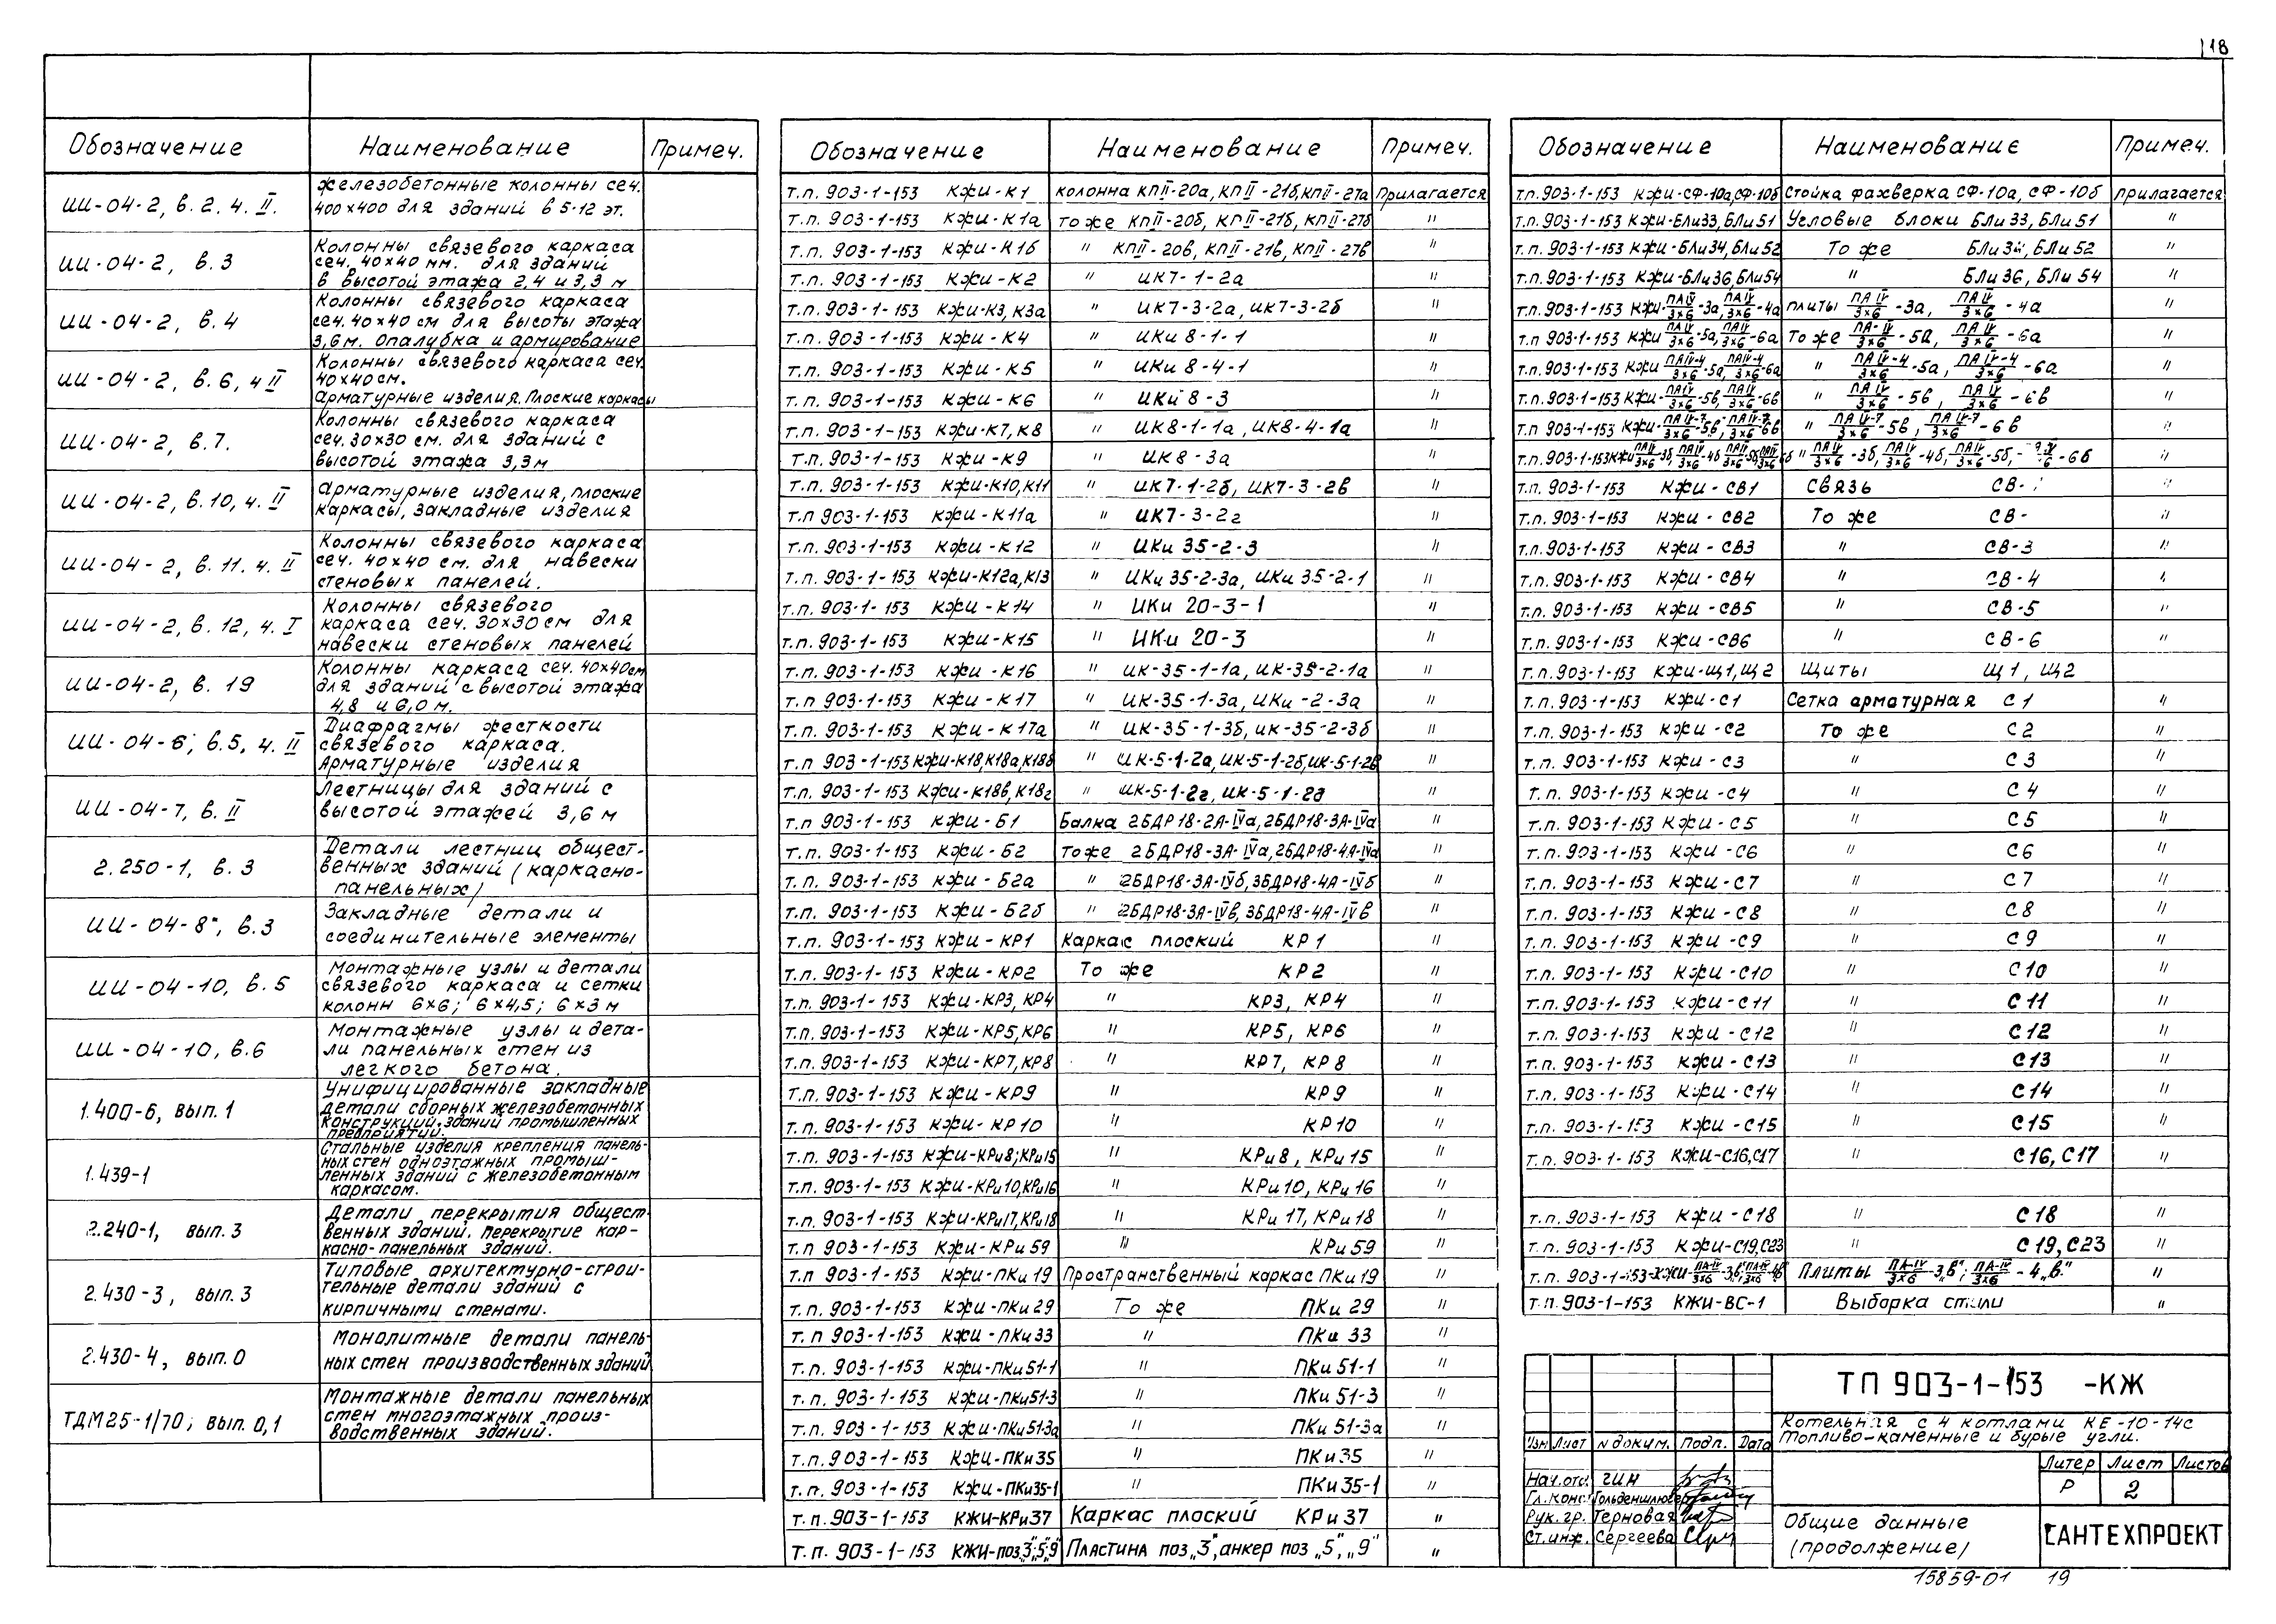 18
Обозначение Наименование Примеч.
ИИ-04-2, в.2. ч. II. железобетонные колонны сеч.
400х400 для зданий в 5-12 эт.
ИИ-04-2, в.3 Колонны связевого каркаса
сеч. 40х40 мм. для зданий
в высотой этажа 2,4 и 3,3 м
ИИ-04-2, в.4 Колонны связевого каркаса
сеч. 40х40 см для высоты этажа
3,6 м. Опалубка и армирование
ИИ-04-2, в.6, ч II Колонны связевого каркаса сеч.
40х40 см.
Арматурные изделия. Плоские каркасы
ИИ-04-2, в.7. Колонны связевого каркаса
сеч. 30х30 см. для зданий с
высотой этажа 3,3 м
ИИ-04-2, в.10, ч. II Арматурные изделия, плоские
каркасы, закладные изделия
ИИ-04-2, в.11. ч. II Колонны связевого каркаса
сеч. 40х40 см. для навески
стеновых панелей.
ИИ-04-2, в.12, ч. I Колонны связевого
каркаса сеч. 30х30 см для
навески стеновых панелей
ИИ-04-2, в. 19 Колонны каркаса сеч. 40х40 см
для зданий с высотой этажа
4,8 и 6,0 м.
ИИ-04-6, в.5, ч. II Диафрагмы жесткости
связевого каркаса.
Арматурные изделия
ИИ-04-7, в. II Лестницы для зданий с
высотой этажей 3,6 м
2.250-1, в.3 Детали лестниц общест-
венных зданий (каркасно-
панельных)
ИИ-04-8, в.3 Закладные детали и
соединительные элементы
ИИ-04-10, в.5 Монтажные узлы и детали
связевого каркаса и сетки
колонн 6х6; 6х4,5; 6х3 м
ИИ-04-10, в.6 Монтажные узлы и дета-
ли панельных стен из
легкого бетона.
1.400-6, вып.1 Унифицированные закладные
детали сборных железобетонных
конструкций зданий промышленных
предприятий.
1.439-1 Стальные изделия крепления панель-
ных стен одноэтажных промыш-
ленных зданий с железобетонным
каркасом.
2.240-1, вып.3 Детали перекрытия общест
венных зданий. Перекрытие кар-
касно-панельных зданий.
2.430-3, вып.3 Типовые архитектурно-строи-
тельные детали зданий с
кирпичными стенами.
2.430-4, вып.0 Монолитные детали панель-
ных стен производственных зданий
ТДМ25-1/70; вып. 0,1 Монтажные детали панельных
стен многоэтажных произ-
водственных зданий.
Обозначение Наименование Примеч.
т.п. 903-1-153 КЖИ-К1 колонна КПII-20а, КПII-21б, КПII-27а прилагается
т.п. 903-1-153 КЖИ-К1а то же КПII-20б, КПII-21б, КПII-27б "
т.п. 903-1-153 КЖИ-К1б " КПII-20в, КПII-21в, КПII-27в "
т.п. 903-1-153 КЖИ-К2 " ИК7-1-2а "
т.п. 903-1-153 КЖИ-К3, К3а " ИК7-3-2а, ИК7-3-2б "
т.п. 903-1-153 КЖИ-К4 " ИКи 8-1-1 "
т.п. 903-1-153 КЖИ-К5 " ИКи 8-4-1 "
т.п. 903-1-153 КЖИ-К6 " ИКи 8-3 "
т.п. 903-1-153 КЖИ-К7, К8 " ИК8-1-1а, ИК8-4-1а "
т.п. 903-1-153 КЖИ-К9 " ИК8-3а "
т.п. 903-1-153 КЖИ-К10, К11 " ИК7-1-2б, ИК7-3-2в "
т.п 903-1-153 КЖИ-К11а " ИК7-3-2г "
т.п. 903-1-153 КЖИ-К12 " ИКи 35-2-3 "
т.п. 903-1-153 КЖИ-К12а, К13 " ИКи 35-2-3а, ИКи 35-2-1 "
т.п. 903-1-153 КЖИ-К14 " ИКи 20-3-1 "
т.п. 903-1-153 КЖИ-К15 " ИКи 20-3 "
т.п. 903-1-153 КЖИ-К16 " ИК-35-1-1а, ИК-35-2-1а "
т.п 903-1-153 КЖИ-К17 " ИК-35-1-3а, ИКи-2-3а "
т.п. 903-1-153 КЖИ-К17а " ИК-35-1-3б, ИК-35-2-3б "
т.п 903-1-153 КЖИ-К18, К18а, К18б " ИК-5-1-2а, ИК-5-1-2б, ИК-5-1-2в "
т.п. 903-1-153 КЖИ-К18в, К18г " ИК-5-1-2г, ИК-5-1-2д "
т.п 903-1-153 КЖИ-Б1 Балка 2БДР18-2А-IVа, 2БДР18-3А-IVа "
т.п. 903-1-153 КЖИ-Б2 то же 2БДР18-3А-IVа, 2БДР18-4А-IVа "
т.п. 903-1-153 КЖИ-Б2а " 2БДР18-3А-IVб, 3БДР18-4А-IVб "
т.п. 903-1-153 КЖИ-Б2б " 2БДР18-3А-IVв, 3БДР18-4А-IVв "
т.п. 903-1-153 КЖИ-КР1 Каркас плоский КР1 "
т.п. 903-1-153 КЖИ-КР2 То же КР2 "
т.п. 903-1-153 КЖИ-КР3, КР4 " КР3, КР4 "
т.п. 903-1-153 КЖИ-КР5, КР6 " КР5, КР6 "
т.п. 903-1-153 КЖИ-КР7, КР8 " КР7, КР8 "
т.п. 903-1-153 КЖИ-КР9 " КР9 "
т.п. 903-1-153 КЖИ-КР10 " КР10 "
т.п. 903-1-153 КЖИ-КРи8; КРи15 " КРи8, КРи15 "
т.п. 903-1-153 КЖИ-КРи10, КРи16 " КРи10, КРи16 "
т.п. 903-1-153 КЖИ-КРи17, КРи18 " КРи 17, КРи 18 "
т.п 903-1-153 КЖИ-КРи59 " КРи59 "
т.п 903-1-153 КЖИ-ПКи19 Пространственный каркас ПКи19 "
т.п. 903-1-153 КЖИ-ПКи29 То же ПКи 29 "
т.п 903-1-153 КЖИ-ПКи33 " ПКи 33 "
т.п. 903-1-153 КЖИ-ПКи51-1 " ПКи 51-1 "
т.п. 903-1-153 КЖИ-ПКи51-3 " ПКи 51-3 "
т.п. 903-1-153 КЖИ-ПКи51-3а " ПКи 51-3а "
т.п. 903-1-153 КЖИ-ПКи35 " ПКи35 "
т.п. 903-1-153 КЖИ-ПКи35-1 " ПКи35-1 "
т.п. 903-1-153 КЖИ-КРи37 Каркас плоский КРи37 "
т.п. 903-1-153 КЖИ-поз„3",„5",„9" Пластина поз„3", анкер поз „5", „9" "
Обозначение Наименование Примеч.
т.п. 903-1-153 КЖИ-СФ-10а, СФ-10б Стойка фахверка СФ-10а, СФ-10б прилагается
т.п. 903-1-153 КЖИ-БЛи33, БЛи51 Угловые блоки БЛи 33, БЛи 51 "
т.п. 903-1-153 КЖИ-БЛи34, БЛи52 То же БЛи 34, БЛи 52 "
т.п. 903-1-153 КЖИ-БЛи36, БЛи54 " БЛи 36, БЛи 54 "
т.п. 903-1-153 КЖИ-ПАIV/3х6-3а, ПАIV/3х6-4а плиты ПАIV/3х6-3а, ПАIV/3х6-4а "
т.п 903-1-153 КЖИ ПАIV/3х6-5а, ПАIV/3х6-6а То же ПА-IV/3х6-5а, ПАIV/3х6-6а "
т.п. 903-1-153 КЖИ ПАIV-4/3х6-5а, ПАIV-4/3х6-6а " ПАIV-4/3х6-5а, ПАIV-4/3х6-6а "
т.п. 903-1-153 КЖИ-ПАIV/3х6-5в, ПАIV/3х6-6в " ПАIV/3х6-5в, ПАIV/3х6-6в "
т.п 903-1-153 КЖИ-ПАIV-7/3х6-5в, ПАIV-7/3х6-6в " ПАIV-7/3х6-5в, ПАIV-7/3х6-6в "
т.п. 903-1-153 КЖИ ПАIV/3х6-3б, ПАIV/3х6-4б, ПАIV/3х6-5б, ПАIV/3х6-6б " ПАIV/3х6-3б, ПАIV/3х6-4б, ПАIV/3х6-5б, -6б "
т.п. 903-1-153 КЖИ-СВ1 Связь СВ- "
т.п. 903-1-153 КЖИ-СВ2 То же СВ- "
т.п. 903-1-153 КЖИ-СВ3 " СВ-3 "
т.п. 903-1-153 КЖИ-СВ4 " СВ-4 "
т.п. 903-1-153 КЖИ-СВ5 " СВ-5 "
т.п. 903-1-153 КЖИ-СВ6 " СВ-6 "
т.п. 903-1-153 КЖИ-Щ1, Щ2 Щиты Щ1, Щ2
т.п. 903-1-153 КЖИ-С1 Сетка арматурная С1 "
т.п. 903-1-153 КЖИ-С2 То же С2 "
т.п. 903-1-153 КЖИ-С3 " С3 "
т.п. 903-1-153 КЖИ-С4 " С4 "
т.п. 903-1-153 КЖИ-С5 " С5 "
т.п. 903-1-153 КЖИ-С6 " С6 "
т.п. 903-1-153 КЖИ-С7 " С7 "
т.п. 903-1-153 КЖИ-С8 " С8 "
т.п. 903-1-153 КЖИ-С9 " С9 "
т.п. 903-1-153 КЖИ-С10 " С10 "
т.п. 903-1-153 КЖИ-С11 " С11 "
т.п. 903-1-153 КЖИ-С12 " С12 "
т.п. 903-1-153 КЖИ-С13 " С13 "
т.п. 903-1-153 КЖИ-С14 " С14 "
т.п. 903-1-153 КЖИ-С15 " С15 "
т.п. 903-1-153 КЖИ-С16, С17 " С16, С17 "
т.п. 903-1-153 КЖИ-С18 " С18 "
т.п. 903-1-153 КЖИ-С19, С23 " С19, С23 "
т.п. 903-1-153-КЖИ-ПА-IV/3х6-3„в", ПА-IV/3х6-4„в" Плиты ПА-IV/3х6-3„в"; ПА-IV/3х6-4„в." "
т.п. 903-1-153 КЖИ-ВС-1 Выборка стали "
ТП 903-1-153 -КЖ
Котельная с 4 котлами КЕ-10-14с
Топливо-каменные и бурые угли.
Изм Лист N докум. Подп. Дата
Литер Лист Листов
Р 2
Нач.отд. ГИН
Гл.конс. Гольденшлюгер
Рук. гр. Терновая
Ст.инж. Сергеева
Общие данные
(продолжение)
САНТЕХПРОЕКТ
15859-01 19